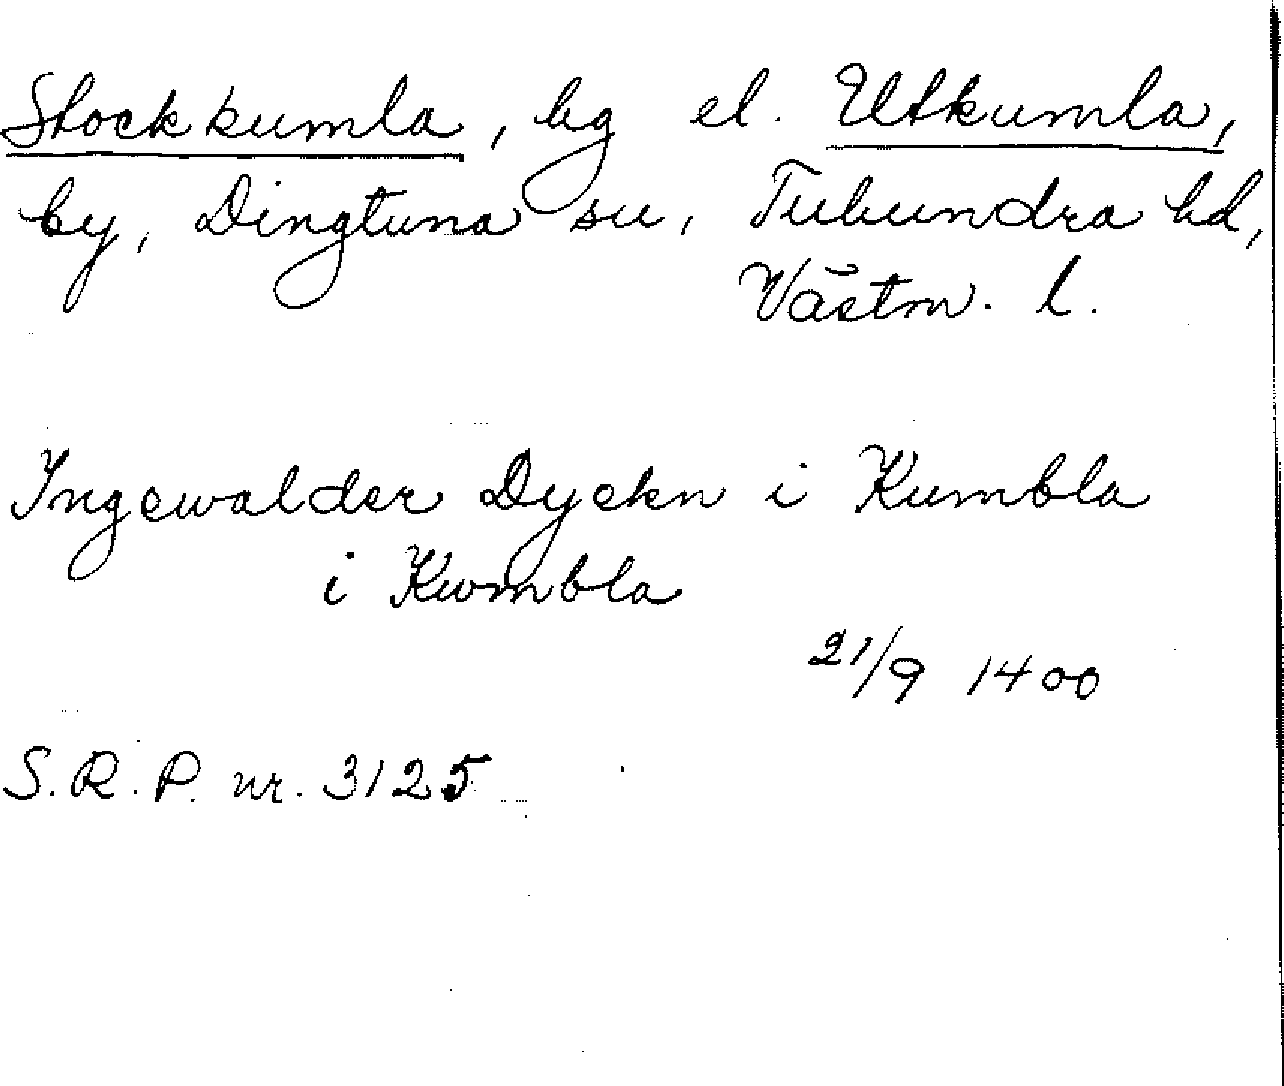 Stockkumla, hg el. Utkumla,
by, Dingtuna sn, Tuhundra hd,
Västm. l.
Ingewalder Dyekn i Kumbla
i Kwmbla
21/9 1400
S.R.P. nr. 3125